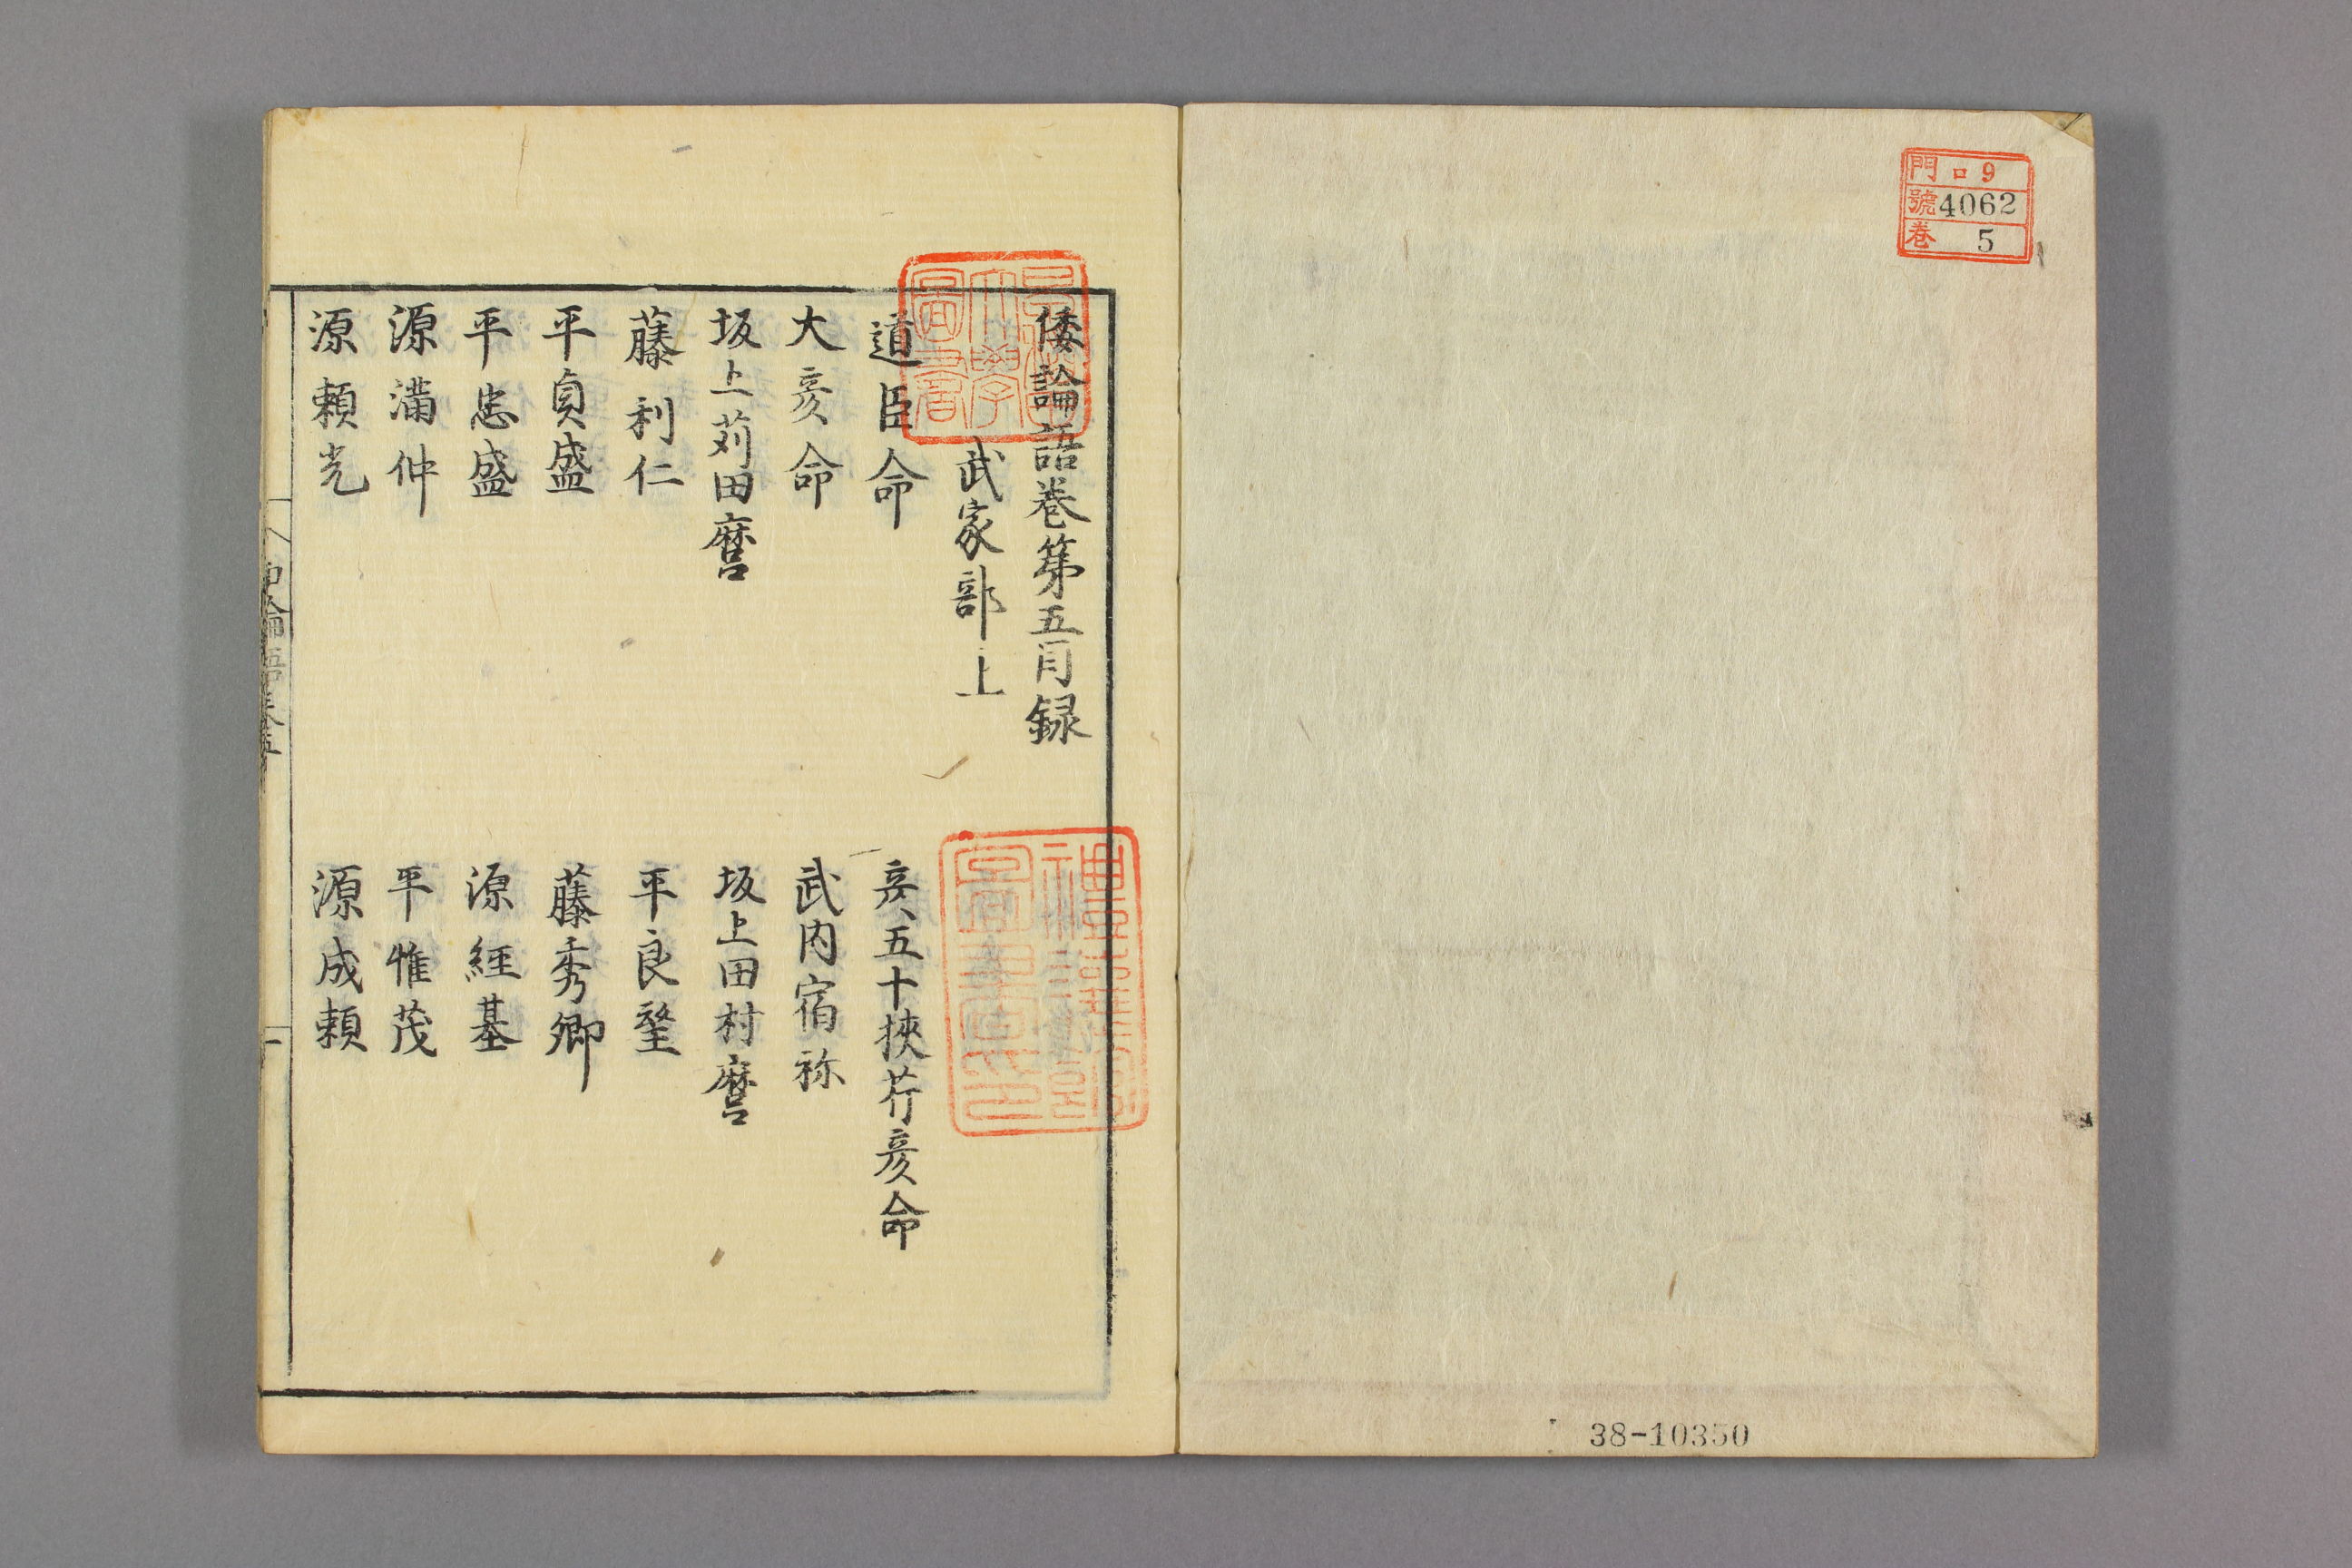 門 ロ9
號 4062
巻 5
38-10350
倭論語巻第五目録
武家部上
道臣命
彦五十狹芹彦命
大彦命
武内宿祢
坂上苅田麿
坂上田村麿
藤利仁
平良望
平貞盛
藤秀郷
平忠盛
源經基
源滿仲
平惟茂
源頼光
源成頼
早稲田大學圖書